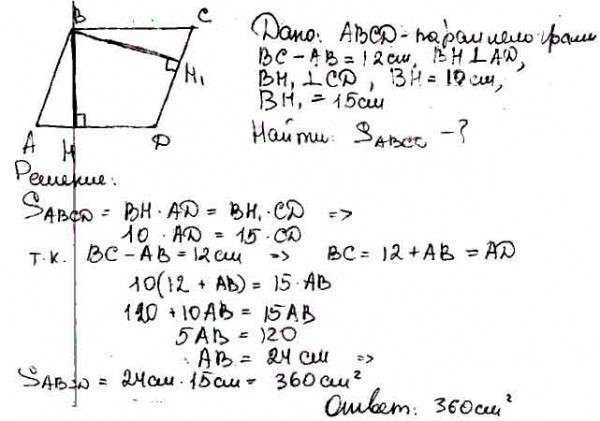 B C
Дано: ABCD - параллелограмм
BC - AB = 12см, BH ⊥ AD,
H₁
BH₁ ⊥ CD, BH = 10см,
BH₁ = 15см
A H D
Найти: S_ABCD - ?
Решение:
S_ABCD = BH · AD = BH₁ · CD =>
10 · AD = 15 · CD
т.к. BC - AB = 12см => BC = 12 + AB = AD
10(12 + AB) = 15 · AB
120 + 10AB = 15AB
5AB = 120
AB = 24 см =>
S_ABCD = 24см · 15см = 360см²
Ответ: 360см²